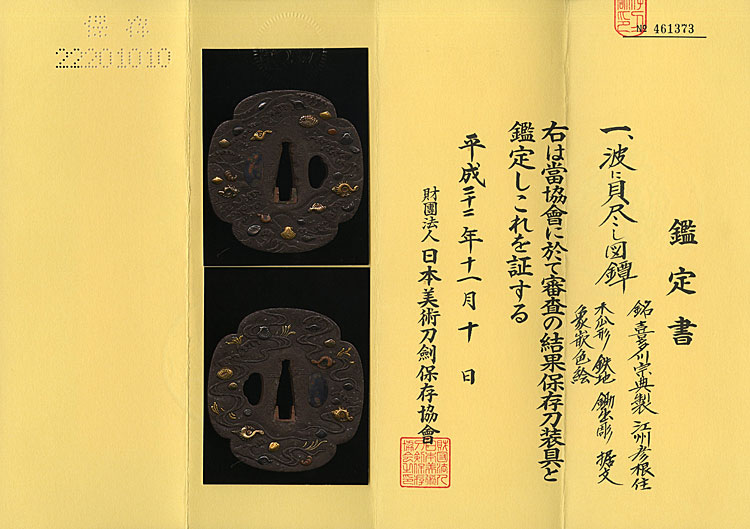 鑑定書
一、波に貝尽し図鐔
銘 喜多川宗典製 江州彦根住
木瓜形 鉄地 鋤出彫 据文
象嵌色絵
右は當協會に於て審査の結果保存刀装具と
鑑定しこれを証する
平成二十二年十一月十日
財團法人 日本美術刀劍保存協會
№ 461373
保存
22201010